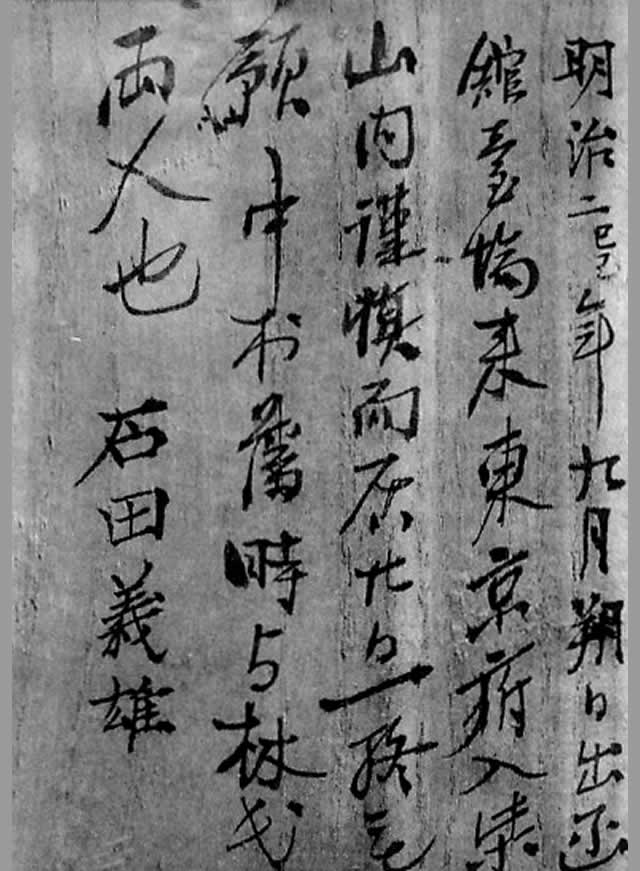 明治二己巳年九月朔日出函
館臺場来東京府入
山内謹慎而廿日
願中於舊時与林
両人也 石田義雄